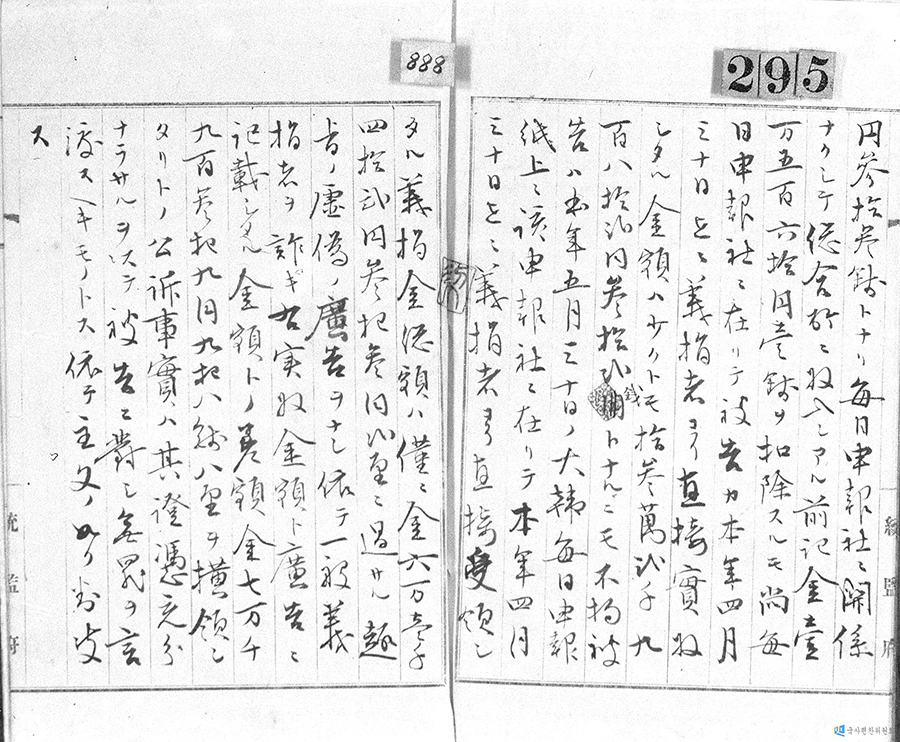 295
888
円參拾錢トナリ毎日申報社ニ関係
ナクシテ総合所ニ収入シアル前記金壹
万五百六拾円壹錢ヲ扣除スルモ尚毎
日申報社ニ在リテ被告カ本年四月
三十日迄ニ義捐者ヨリ直接實収
シタル金額ハ少クトモ拾參萬弐千九
百八拾弐円參拾弐錢トナルニモ不拘被
告ハ本年五月三十日ノ大韓毎日申報
紙上ニ該申報社ニ在リテ本年四月
三十日迄ニ義捐者ヨリ直接受領シ
タル義捐金総額ハ僅ニ金六万壹千
四拾弐円參拾參円弐厘ニ過サル趣
旨ノ虚偽ノ廣告ヲナシ依テ一般義
捐者ヲ詐ギ右実収金額ト廣告ニ
記載シタル金額トノ差額金七万千
九百參拾九円九拾八錢八厘ヲ横領シ
タリトノ公訴事實ハ其證憑充分
ナラサルヲ以テ被告ニ對シ無罪ヲ言
渡スヘキモノトス依テ主文ノ如ク判決
ス
統監府
統監府
국사편찬위원회